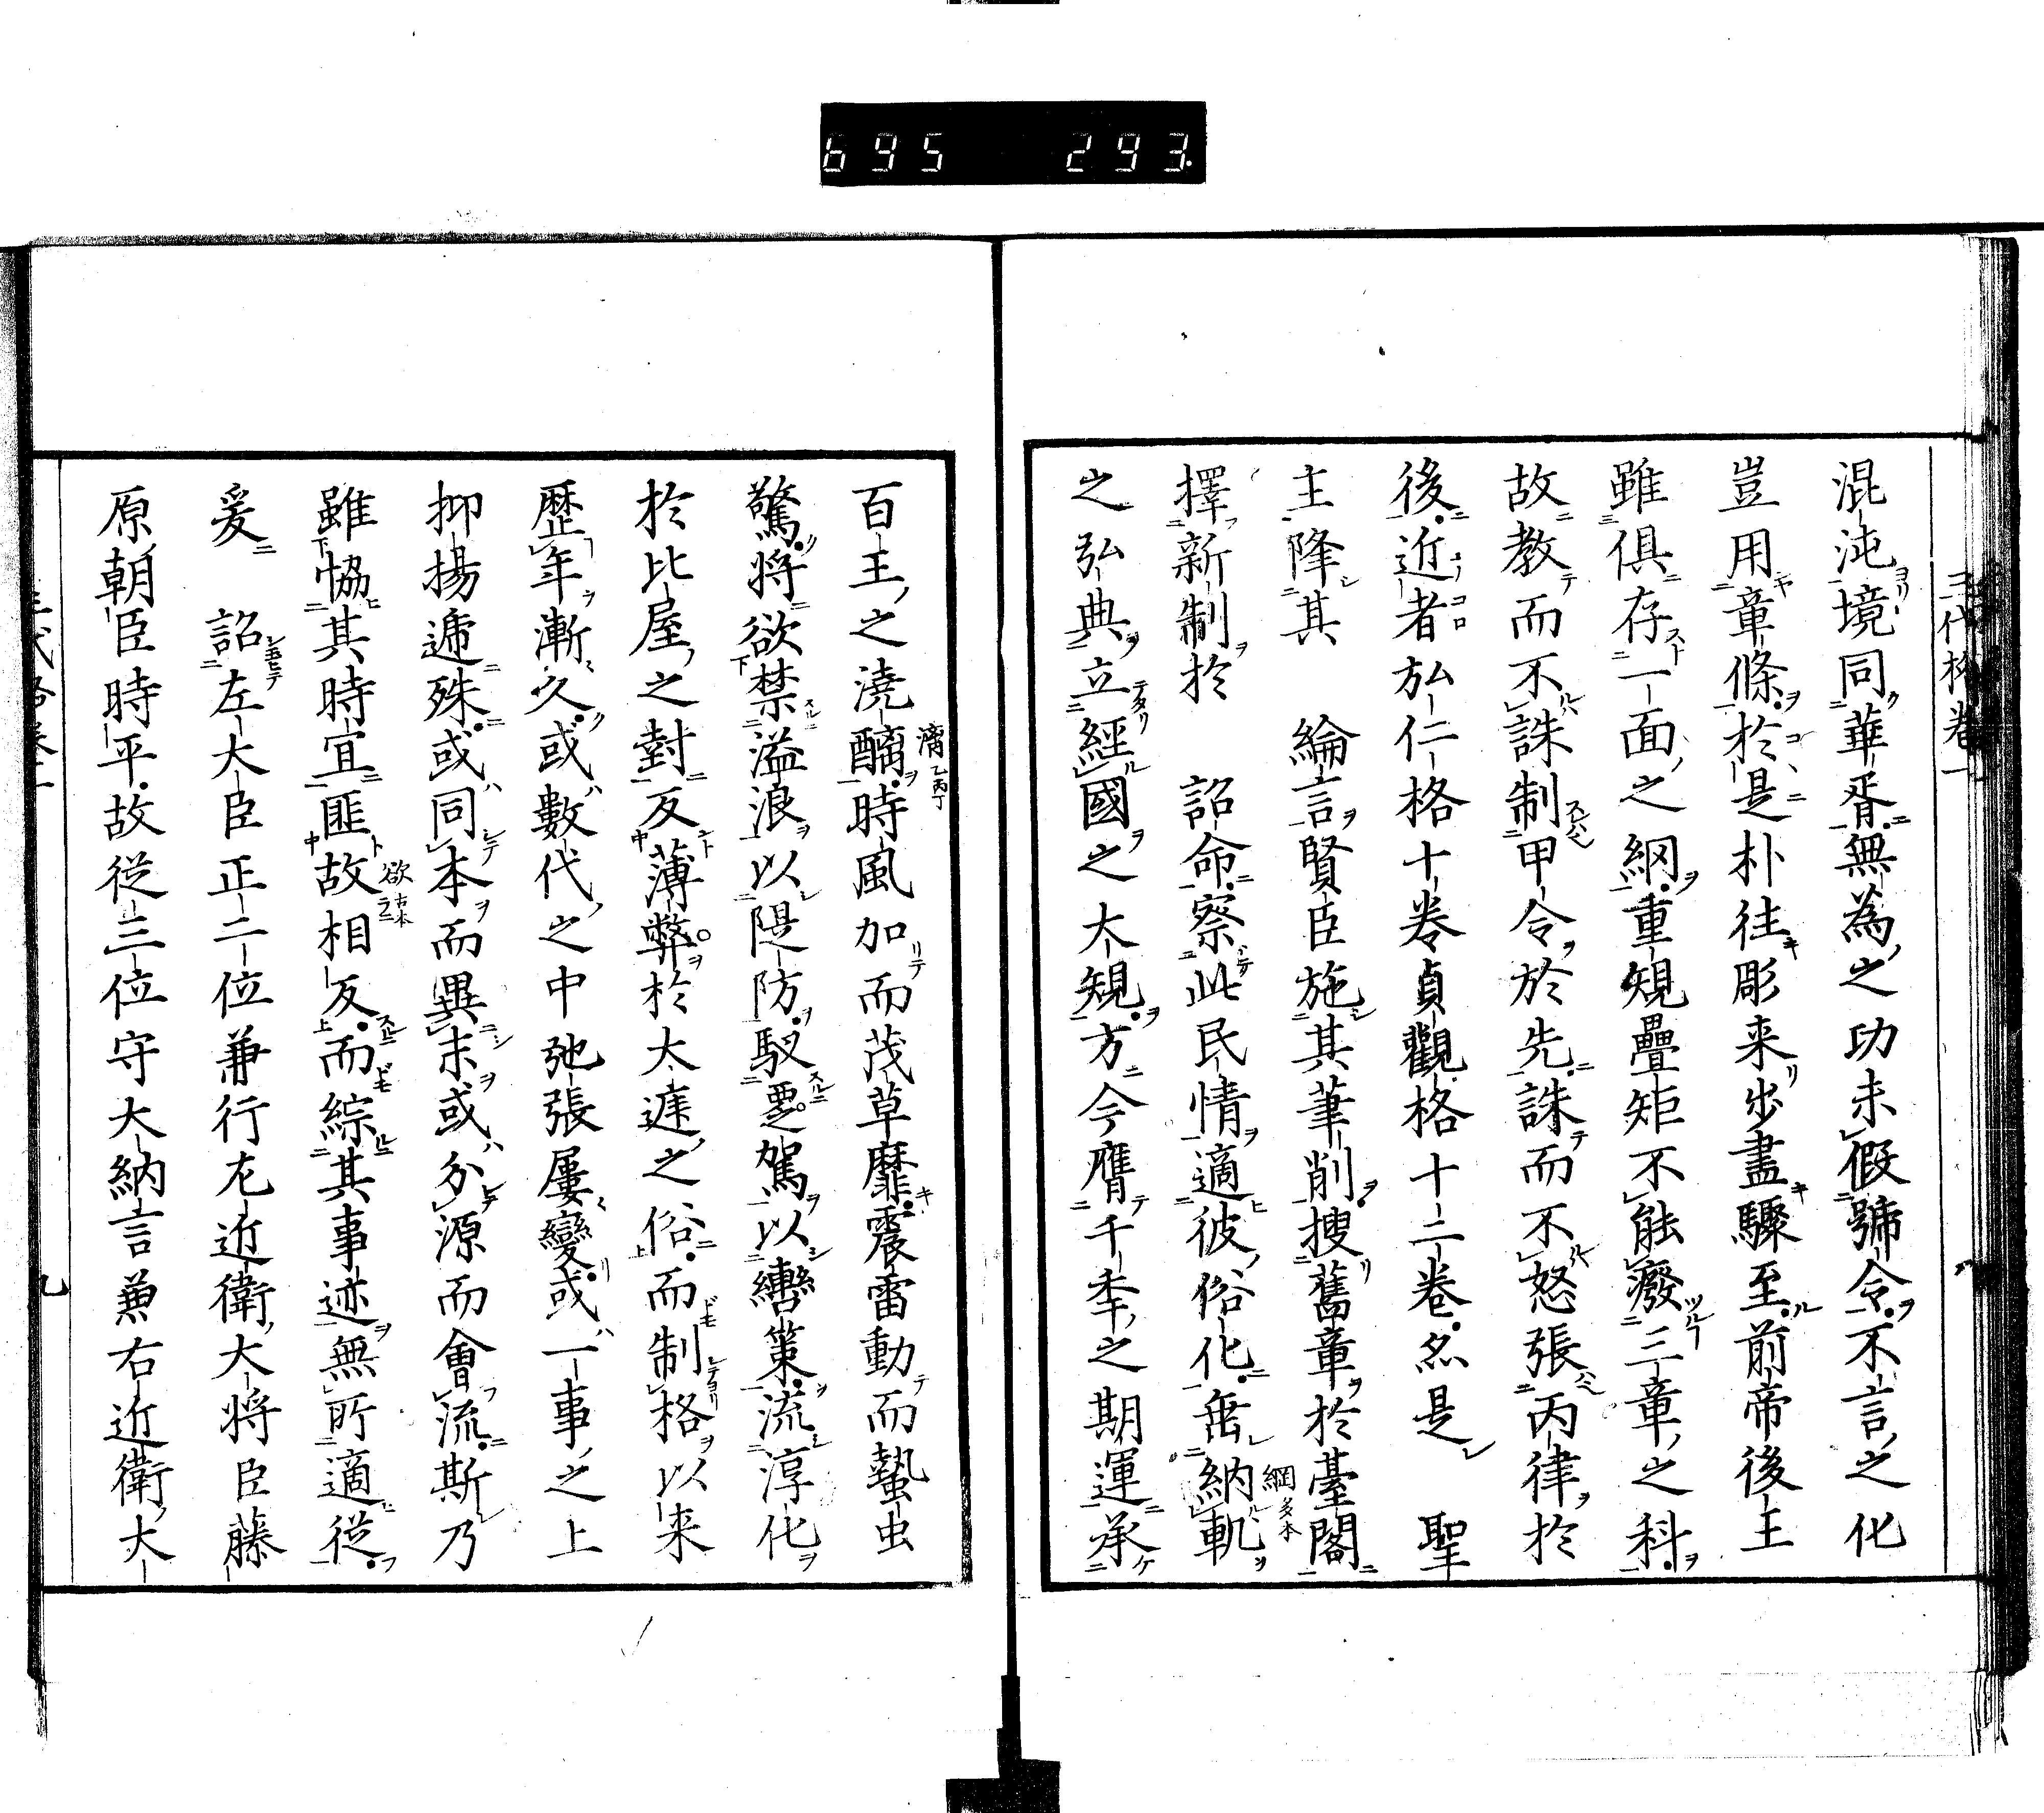 695 293
混沌境同華胥無為之功未假號令不言之化
豈用章條於是朴往彫来步盡驟至前帝後王
雖俱存一面之網重規疊矩不能癈三章之科
故教而不誅制甲令於先誅而不怒張丙律於
後近者弘仁格十卷貞觀格十二卷是 聖
主降其 綸言賢臣施其筆削搜舊章於臺閣
擇新制於 詔命察此民情適彼俗化 納軌
綱多本
之弘典立經國之大規方今膺千季之期運承
百王之澆醨時風加而茂草靡震雷動而蟄虫
漓乙丙丁
驚將欲禁溢浪以隄防馭 駕以轡策流淳化
於比屋之封反薄弊於大 之俗而制格以来
歴年漸久或數代之中弛張屢變或一事之上
抑揚遞殊或同本而異末或分源而會流斯乃
雖恊其時宜匪故相反而綜其事迹無所適從
欲古本
爰 詔左大臣正二位兼行左近衛大将臣藤
原朝臣時平故從三位守大納言兼右近衛大
三代格卷一
九